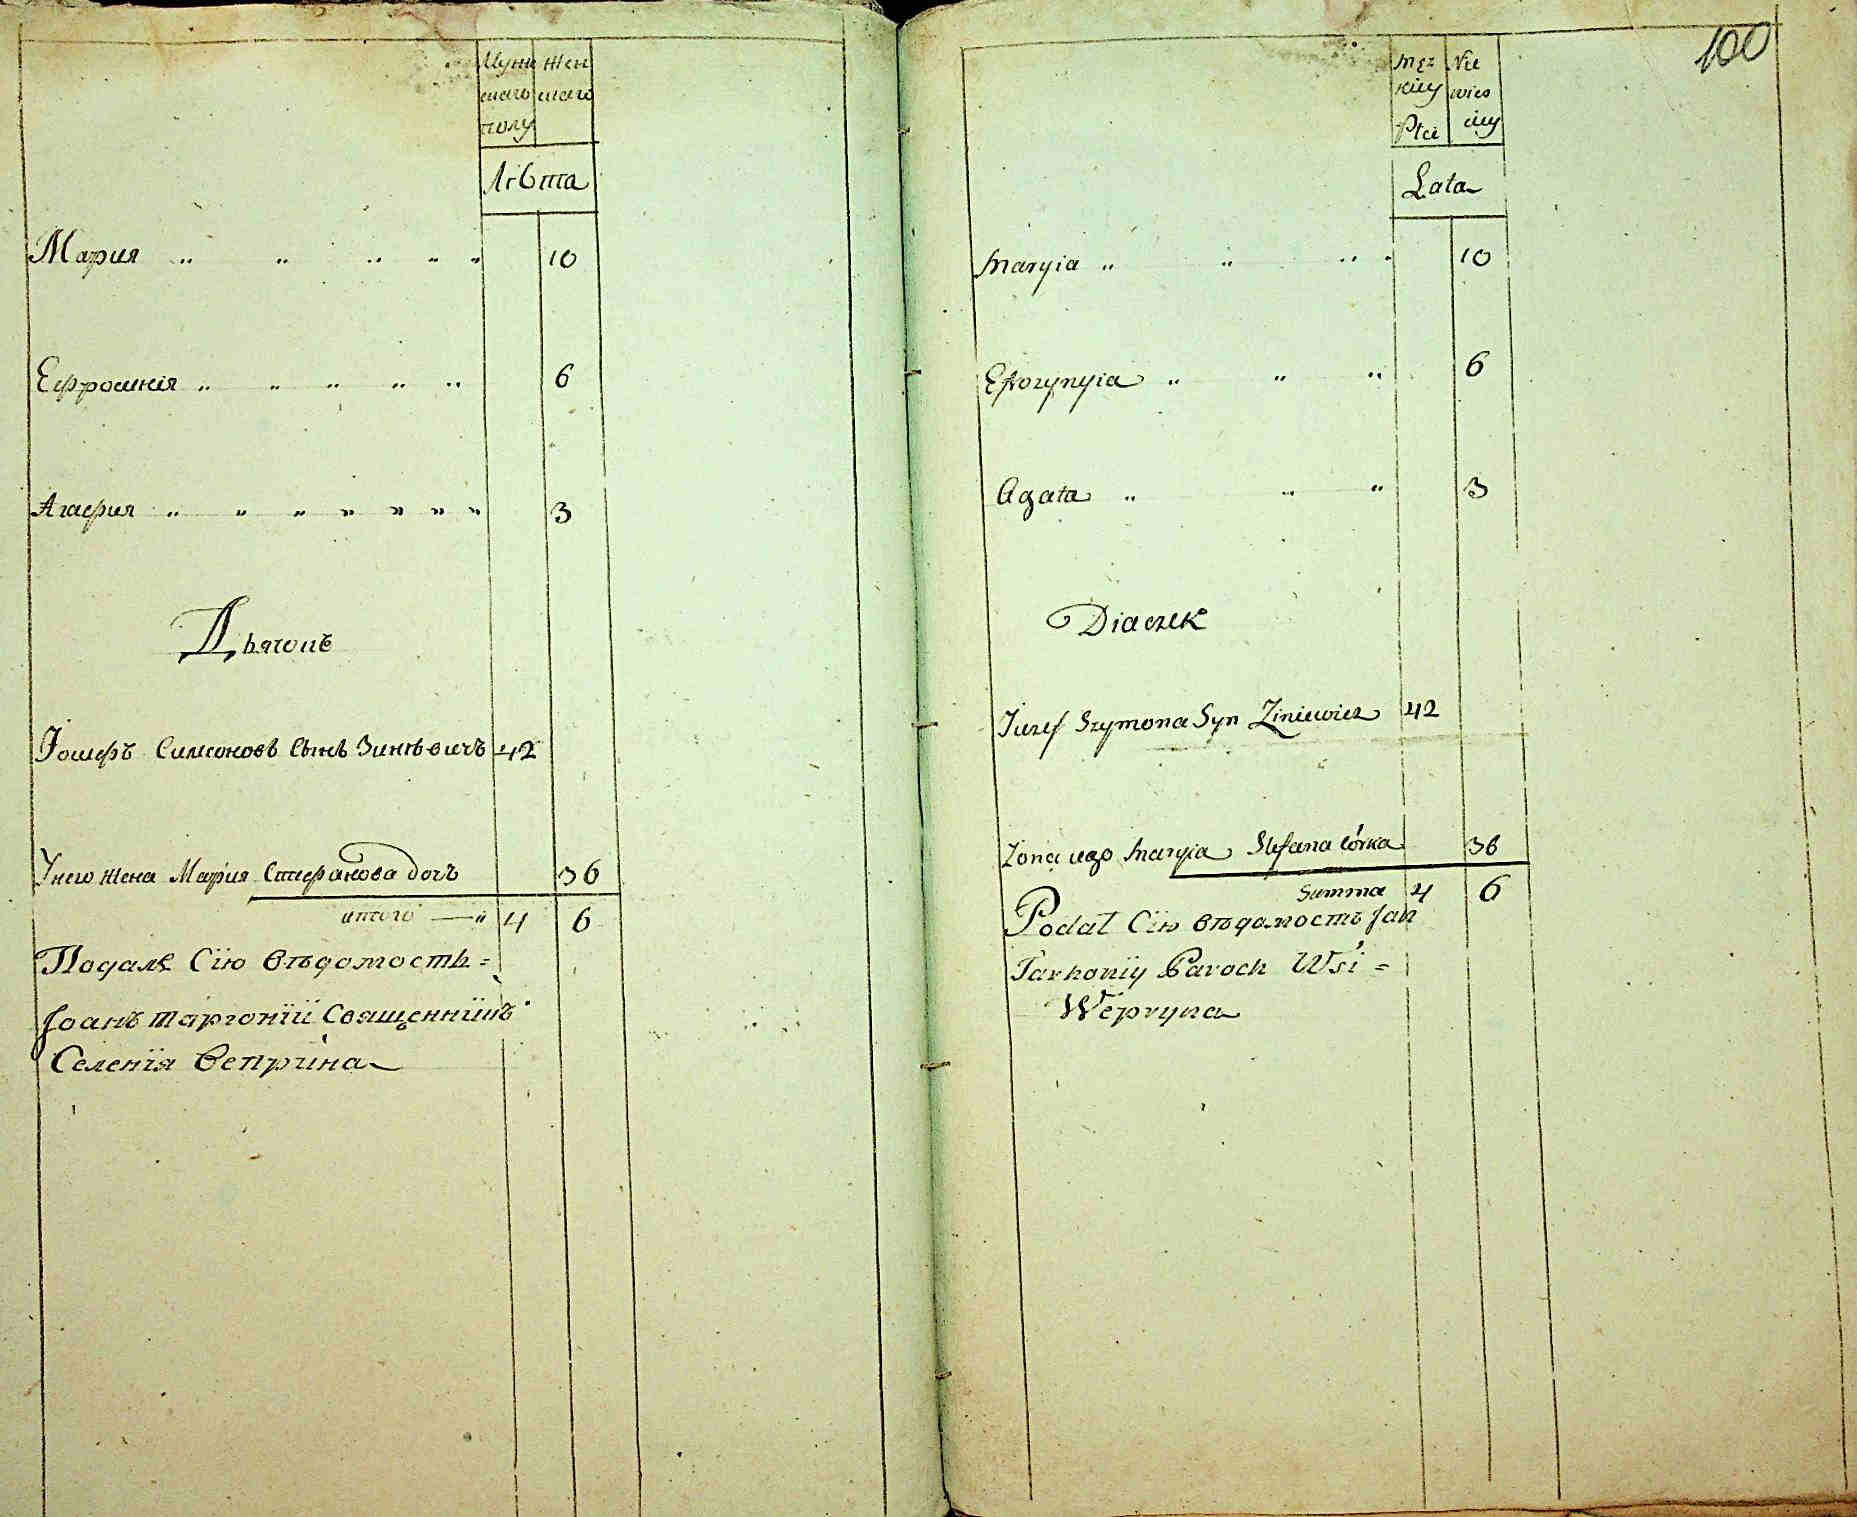 Мужескаго полу Женскаго
Лѣта
Мария 10
Ефросинія 6
Агафия 3
Дьячокъ
Іосифъ Симоновъ Сынъ Зинѣвичъ 42
У него жена Мария Стефанова дочъ 36
итого 4 6
Подалъ Сїю вѣдомость =
Іоанъ Таргонїй Священникъ
Селенїя Веприна
100
Męzkiey Płci Niewiesciey
Lata
Maryia 10
Efrozynyia 6
Agata 3
Diaczek
Iuzef Szymona Syn Ziniewicz 42
Zona iego Maryia Stefana córka 36
Summa 4 6
Podał Сїю вѣдомость Jan
Tarhoniy Paroch Wsi =
Wepryna